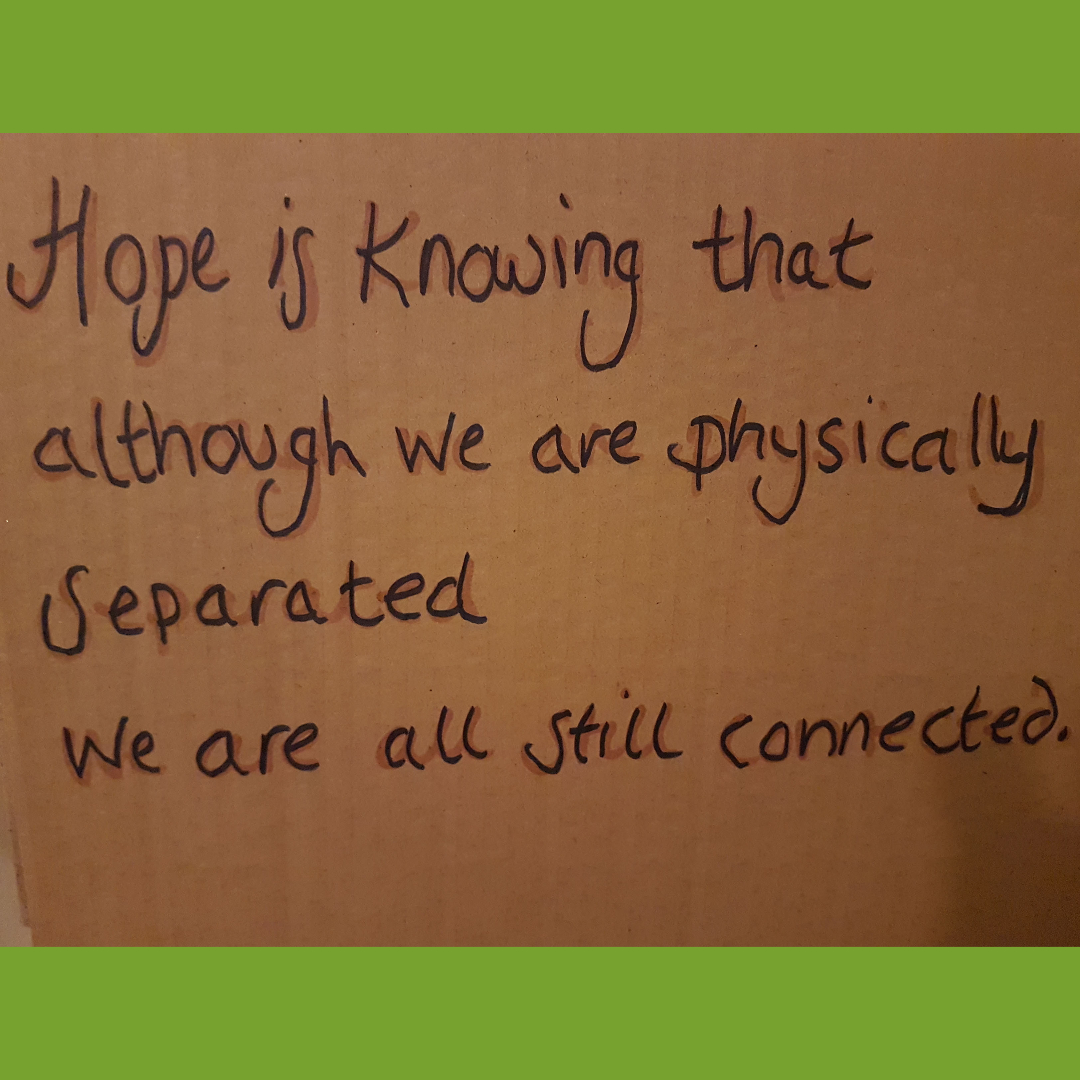 Hope is Knowing that
although we are physically
Separated
We are all still connected.